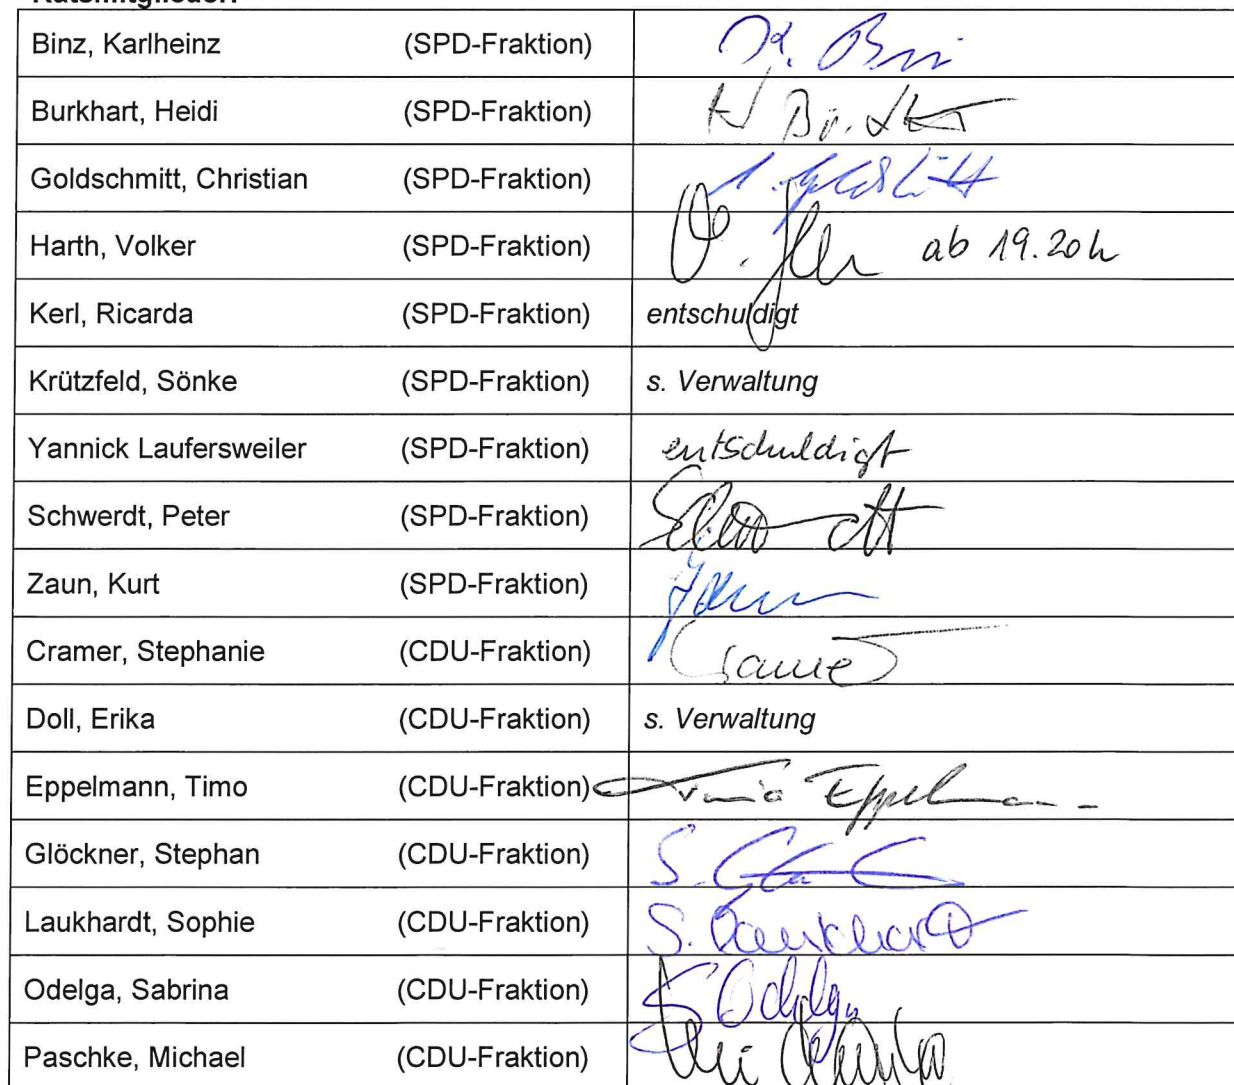 Ratsmitglieder:
Binz, Karlheinz (SPD-Fraktion) K. Bin
Burkhart, Heidi (SPD-Fraktion)
Goldschmitt, Christian (SPD-Fraktion)
Harth, Volker (SPD-Fraktion) ab 19.20h
Kerl, Ricarda (SPD-Fraktion) entschuldigt
Krützfeld, Sönke (SPD-Fraktion) s. Verwaltung
Yannick Laufersweiler (SPD-Fraktion) entschuldigt
Schwerdt, Peter (SPD-Fraktion)
Zaun, Kurt (SPD-Fraktion)
Cramer, Stephanie (CDU-Fraktion) Cramer
Doll, Erika (CDU-Fraktion) s. Verwaltung
Eppelmann, Timo (CDU-Fraktion) Timo Eppelmann
Glöckner, Stephan (CDU-Fraktion)
Laukhardt, Sophie (CDU-Fraktion) S. Laukhardt
Odelga, Sabrina (CDU-Fraktion) S Odelga
Paschke, Michael (CDU-Fraktion)